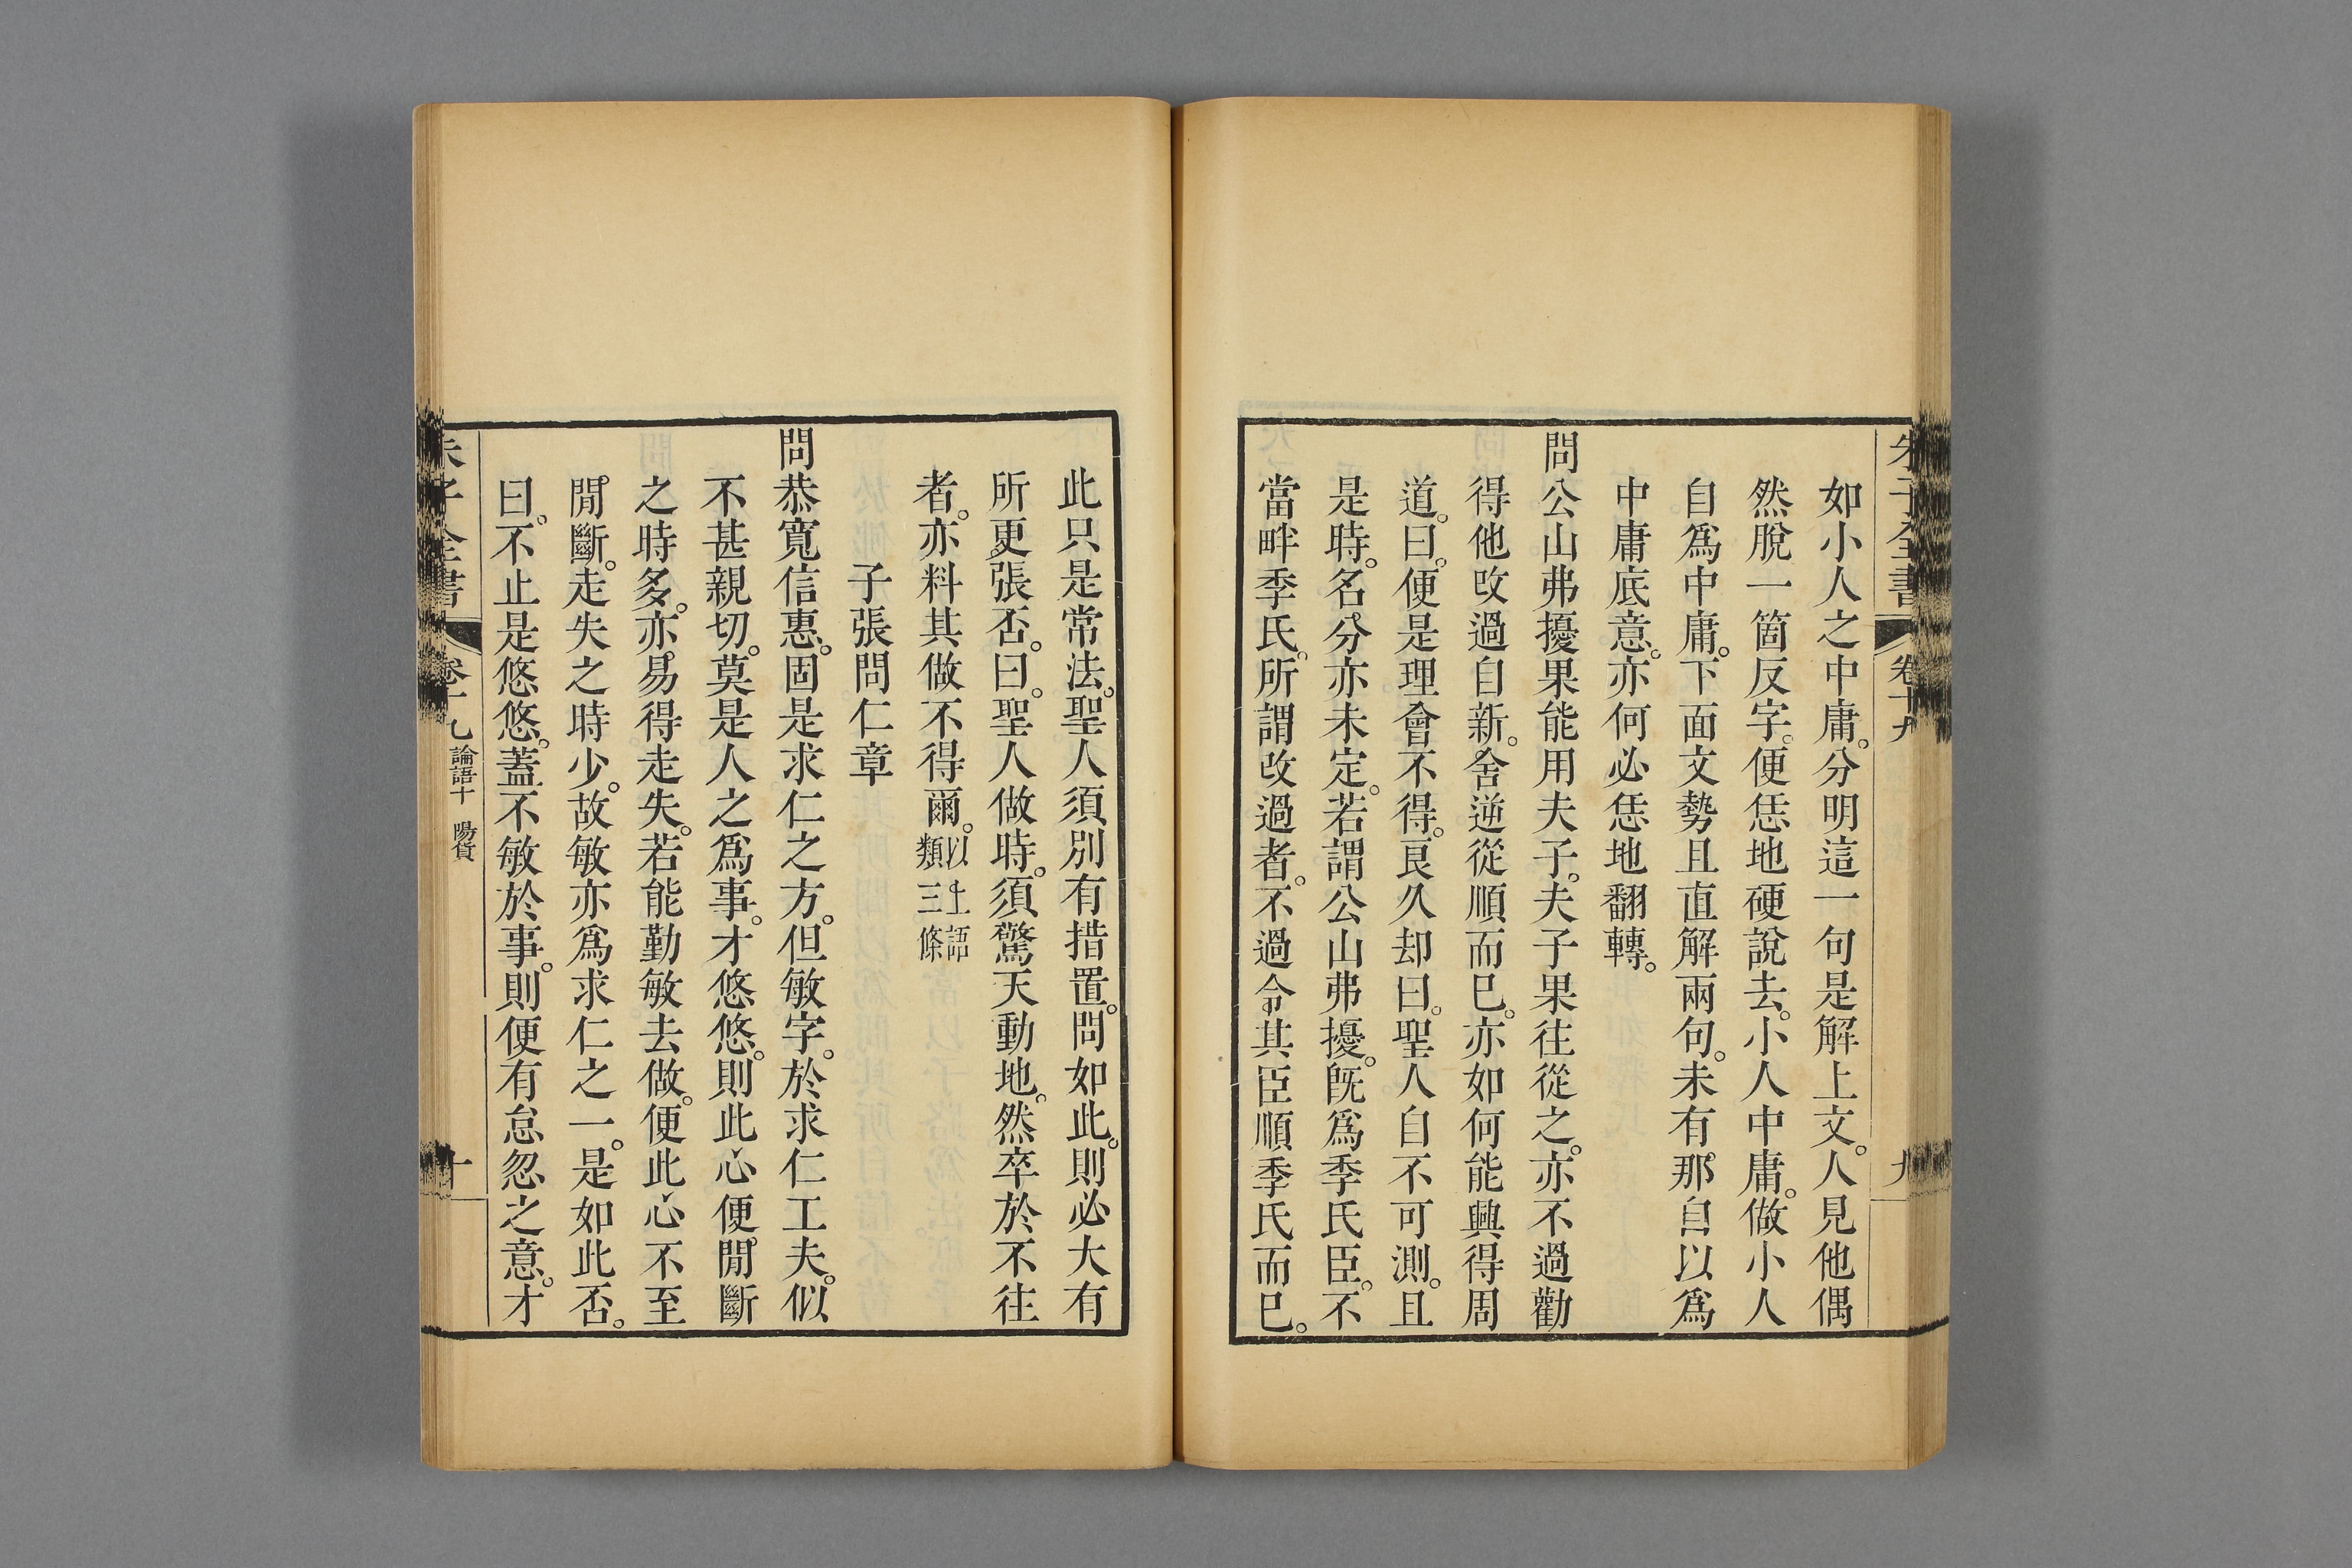 朱子全書 卷十九 九
如小人之中庸。分明這一句是解上文。人見他偶
然脫一箇反字。便恁地硬說去。小人中庸。做小人
自爲中庸。下面文勢且直解兩句。未有那自以爲
中庸底意。亦何必恁地翻轉。
問公山弗擾果能用夫子。夫子果往從之。亦不過勸
得他改過自新。舍逆從順而已。亦如何能興得周
道。曰。便是理會不得。良久却曰。聖人自不可測。且
是時。名分亦未定。若謂公山弗擾。旣爲季氏臣。不
當畔季氏。所謂改過者。不過令其臣順季氏而已。
此只是常法。聖人須別有措置。問如此。則必大有
所更張否。曰。聖人做時。須驚天動地。然卒於不往
者。亦料其做不得爾。以上語類三條
子張問仁章
問恭寬信惠。固是求仁之方。但敏字。於求仁工夫。似
不甚親切。莫是人之爲事。才悠悠。則此心便閒斷
之時多。亦易得走失。若能勤敏去做。便此心不至
閒斷。走失之時少。故敏亦爲求仁之一。是如此否。
曰。不止是悠悠。蓋不敏於事。則便有怠忽之意。才
朱子全書 卷十九 論語十 陽貨 十